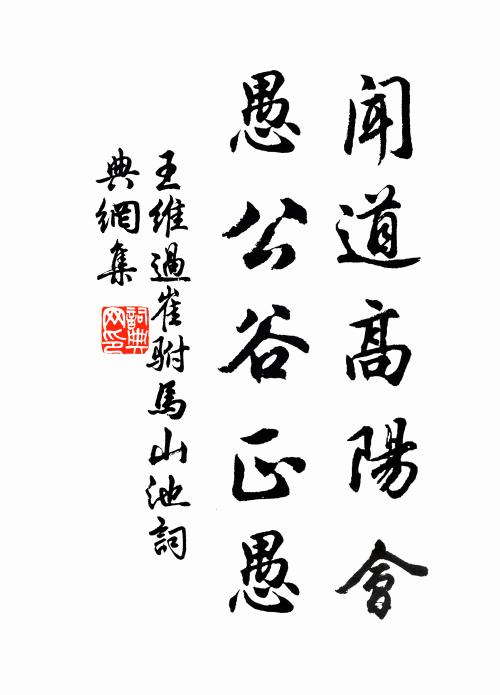 聞道高陽會
愚公谷正愚
王維過崔駙馬山池詞
典網集
詞典
网印